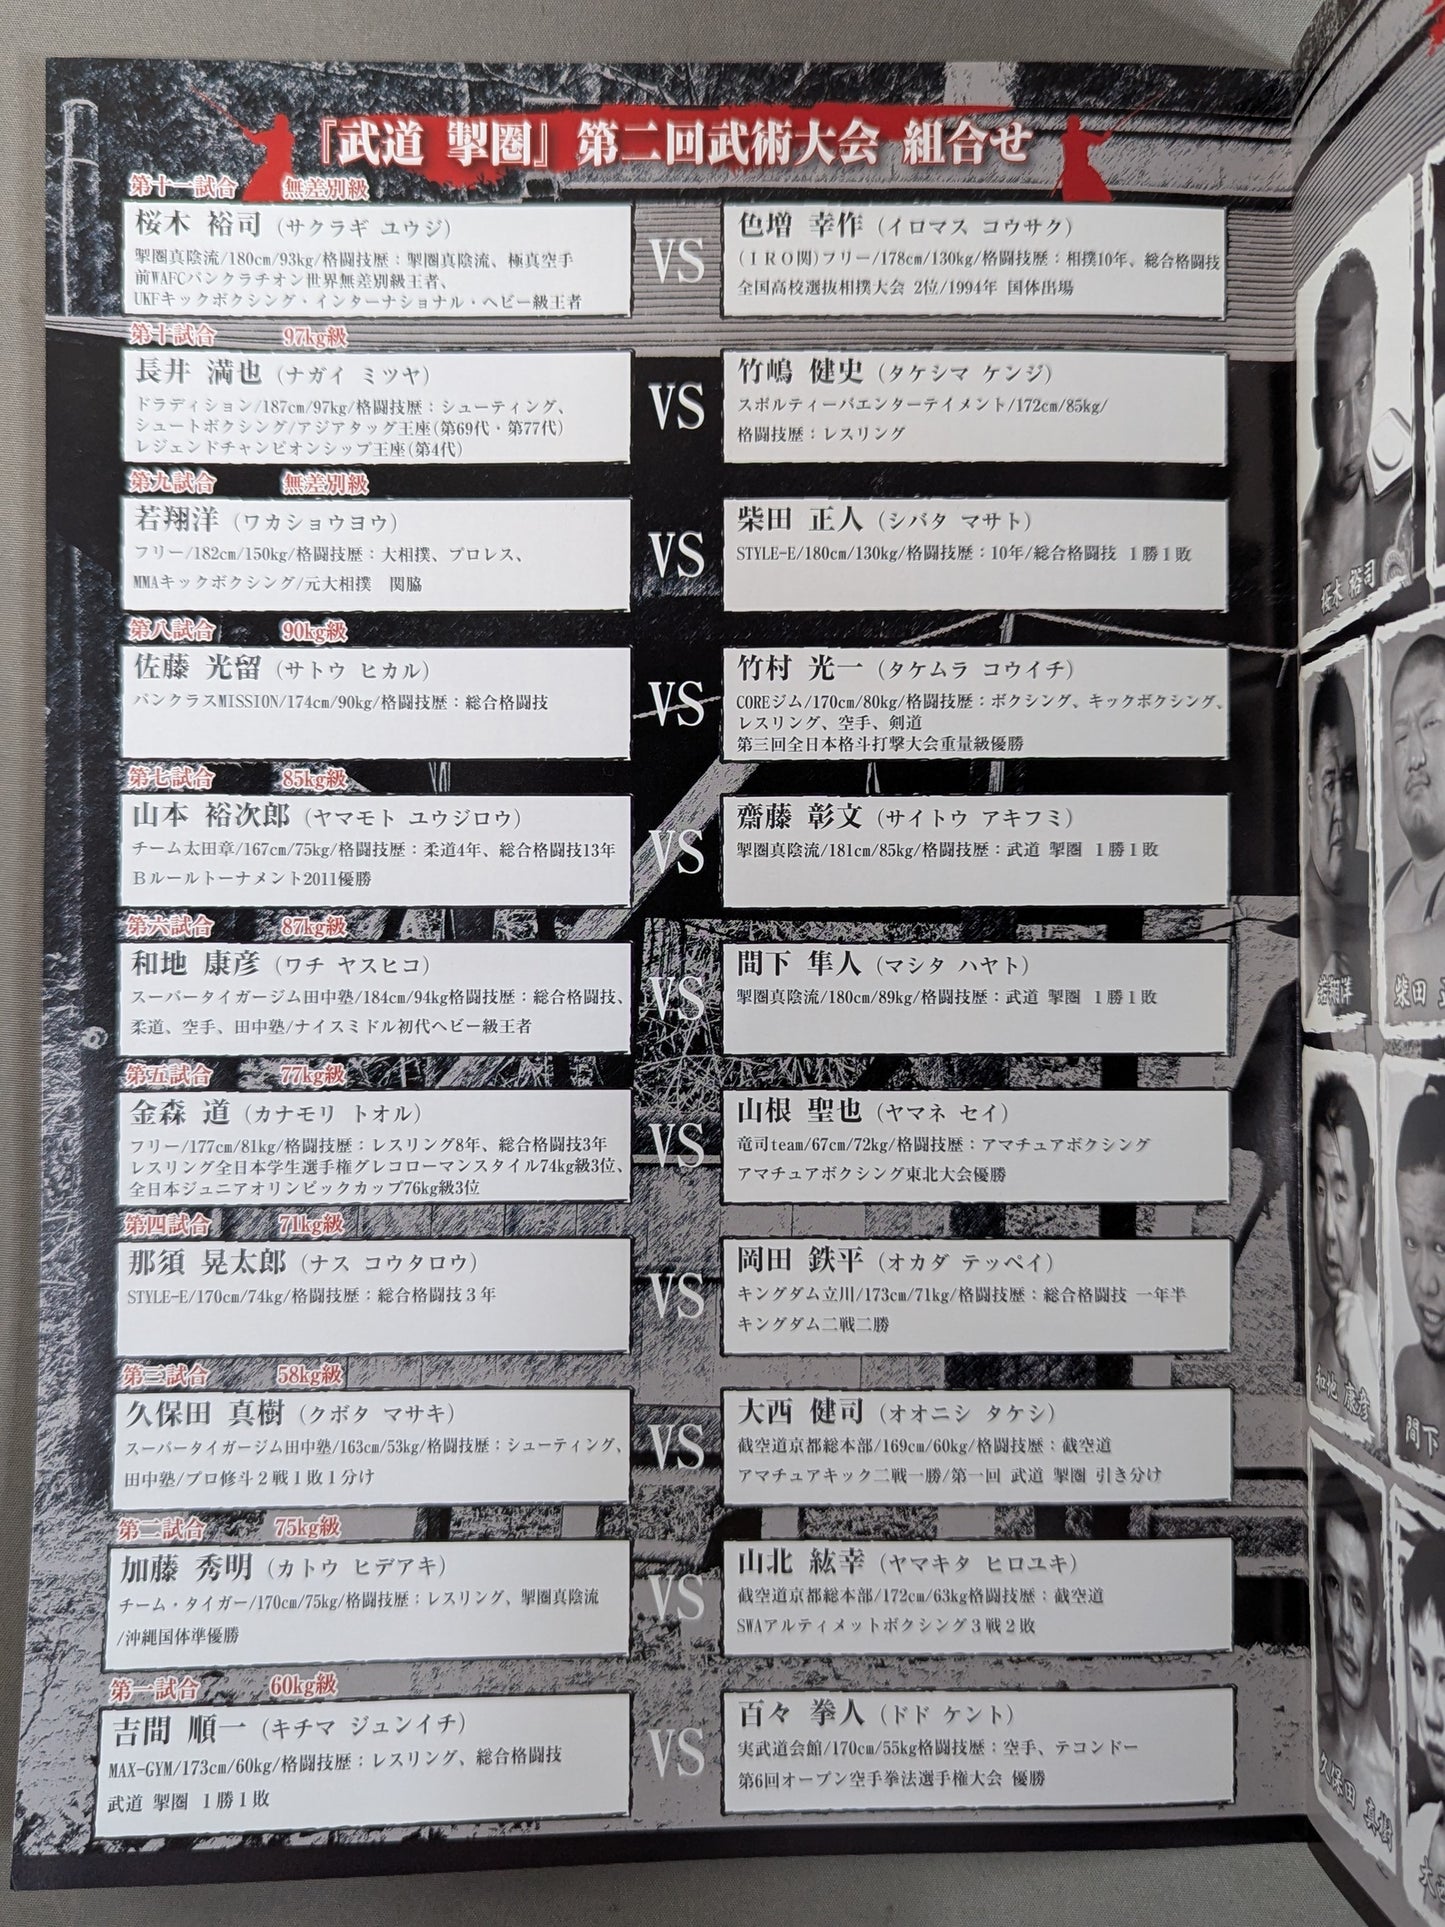 『武道 掣圏』第二回武術大会 組合せ
第十一試合 無差別級
桜木 裕司（サクラギ ユウジ）
掣圏真陰流/180cm/93kg/格闘技歴：掣圏真陰流、極真空手
前WAFCパンクラチオン世界無差別級王者、
UKFキックボクシング・インターナショナル・ヘビー級王者
VS
色増 幸作（イロマス コウサク）
(ＩＲＯ関)フリー/178cm/130kg/格闘技歴：相撲10年、総合格闘技
全国高校選抜相撲大会 2位/1994年 国体出場
第十試合 97kg級
長井 満也（ナガイ ミツヤ）
ドラディション/187cm/97kg/格闘技歴：シューティング、
シュートボクシング/アジアタッグ王座(第69代・第77代)
レジェンドチャンピオンシップ王座(第4代)
VS
竹嶋 健史（タケシマ ケンジ）
スポルティーバエンターテイメント/172cm/85kg/
格闘技歴：レスリング
第九試合 無差別級
若翔洋（ワカショウヨウ）
フリー/182cm/150kg/格闘技歴：大相撲、プロレス、
MMAキックボクシング/元大相撲 関脇
VS
柴田 正人（シバタ マサト）
STYLE-E/180cm/130kg/格闘技歴：10年/総合格闘技 １勝１敗
第八試合 90kg級
佐藤 光留（サトウ ヒカル）
パンクラスMISSION/174cm/90kg/格闘技歴：総合格闘技
VS
竹村 光一（タケムラ コウイチ）
COREジム/170cm/80kg/格闘技歴：ボクシング、キックボクシング、
レスリング、空手、剣道
第三回全日本格斗打撃大会重量級優勝
第七試合 85kg級
山本 裕次郎（ヤマモト ユウジロウ）
チーム太田章/167cm/75kg/格闘技歴：柔道4年、総合格闘技13年
Ｂルールトーナメント2011優勝
VS
齋藤 彰文（サイトウ アキフミ）
掣圏真陰流/181cm/85kg/格闘技歴：武道 掣圏 １勝１敗
第六試合 87kg級
和地 康彦（ワチ ヤスヒコ）
スーパータイガージム田中塾/184cm/94kg格闘技歴：総合格闘技、
柔道、空手、田中塾/ナイスミドル初代ヘビー級王者
VS
間下 隼人（マシタ ハヤト）
掣圏真陰流/180cm/89kg/格闘技歴：武道 掣圏 １勝１敗
第五試合 77kg級
金森 道（カナモリ トオル）
フリー/177cm/81kg/格闘技歴：レスリング8年、総合格闘技3年
レスリング全日本学生選手権グレコローマンスタイル74kg級3位、
全日本ジュニアオリンピックカップ76kg級3位
VS
山根 聖也（ヤマネ セイ）
竜司team/67cm/72kg/格闘技歴：アマチュアボクシング
アマチュアボクシング東北大会優勝
第四試合 71kg級
那須 晃太郎（ナス コウタロウ）
STYLE-E/170cm/74kg/格闘技歴：総合格闘技３年
VS
岡田 鉄平（オカダ テッペイ）
キングダム立川/173cm/71kg/格闘技歴：総合格闘技 一年半
キングダム二戦二勝
第三試合 58kg級
久保田 真樹（クボタ マサキ）
スーパータイガージム田中塾/163cm/53kg/格闘技歴：シューティング、
田中塾/プロ修斗２戦１敗１分け
VS
大西 健司（オオニシ タケシ）
截空道京都総本部/169cm/60kg/格闘技歴：截空道
アマチュアキック二戦一勝/第一回 武道 掣圏 引き分け
第二試合 75kg級
加藤 秀明（カトウ ヒデアキ）
チーム・タイガー/170cm/75kg/格闘技歴：レスリング、掣圏真陰流
/沖縄国体準優勝
VS
山北 紘幸（ヤマキタ ヒロユキ）
截空道京都総本部/172cm/63kg格闘技歴：截空道
SWAアルティメットボクシング３戦２敗
第一試合 60kg級
吉間 順一（キチマ ジュンイチ）
MAX-GYM/173cm/60kg/格闘技歴：レスリング、総合格闘技
武道 掣圏 １勝１敗
VS
百々 拳人（ドド ケント）
実武道会館/170cm/55kg格闘技歴：空手、テコンドー
第6回オープン空手拳法選手権大会 優勝
桜木 裕司
若翔洋
柴田
和地 康彦
間下
久保田 真樹